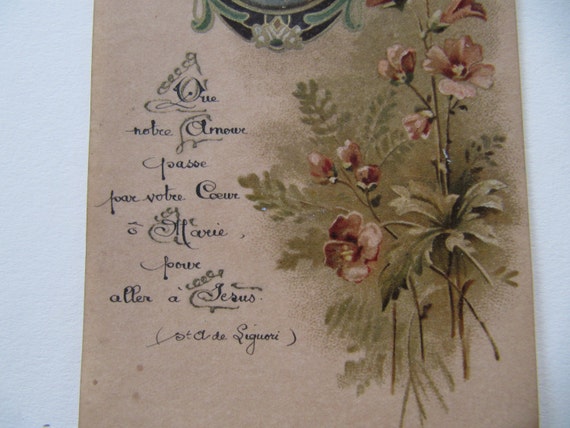 Que
notre Amour
passe
par votre Cœur
ô Marie,
pour
aller à Jésus.
(St A de Liguori)